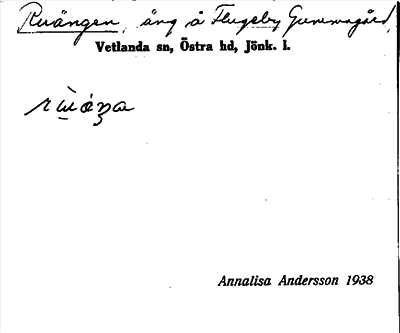 Ruängen, äng å Flugeby Gummagård,
Vetlanda sn, Östra hd, Jönk. l.
Annalisa Andersson 1938